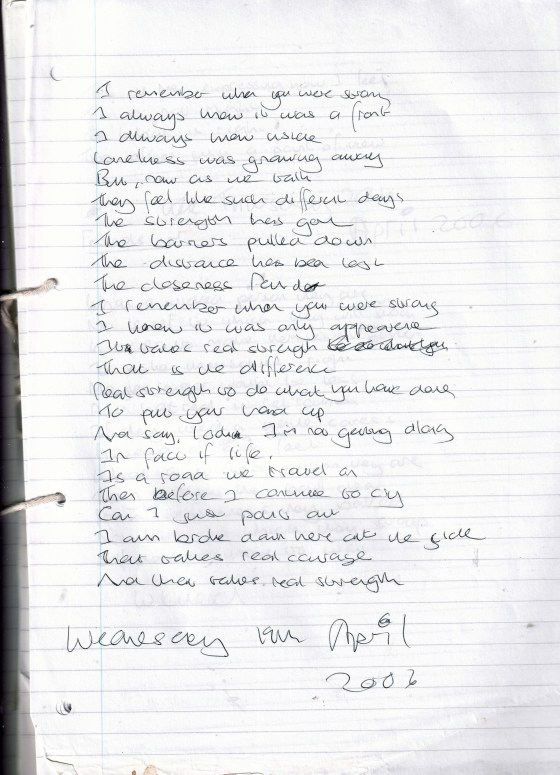 I remember when you were strong
I always knew it was a front
I always knew inside
Loneliness was growing away
But, now as we talk
They feel like such different days
The strength has gone
The barriers pulled down
The distance has been lost
The closeness
I remember when you were strong
I knew it was only
takes real strength
That is the difference
Real strength to do what you have done
To put your hand up
And say, I'm not getting along
In fact if life,
Is a road we travel on
Then before I continue to cry
Can I just point out
I am broke down here at the side
That takes real courage
And that takes real strength
Wednesday 19th April